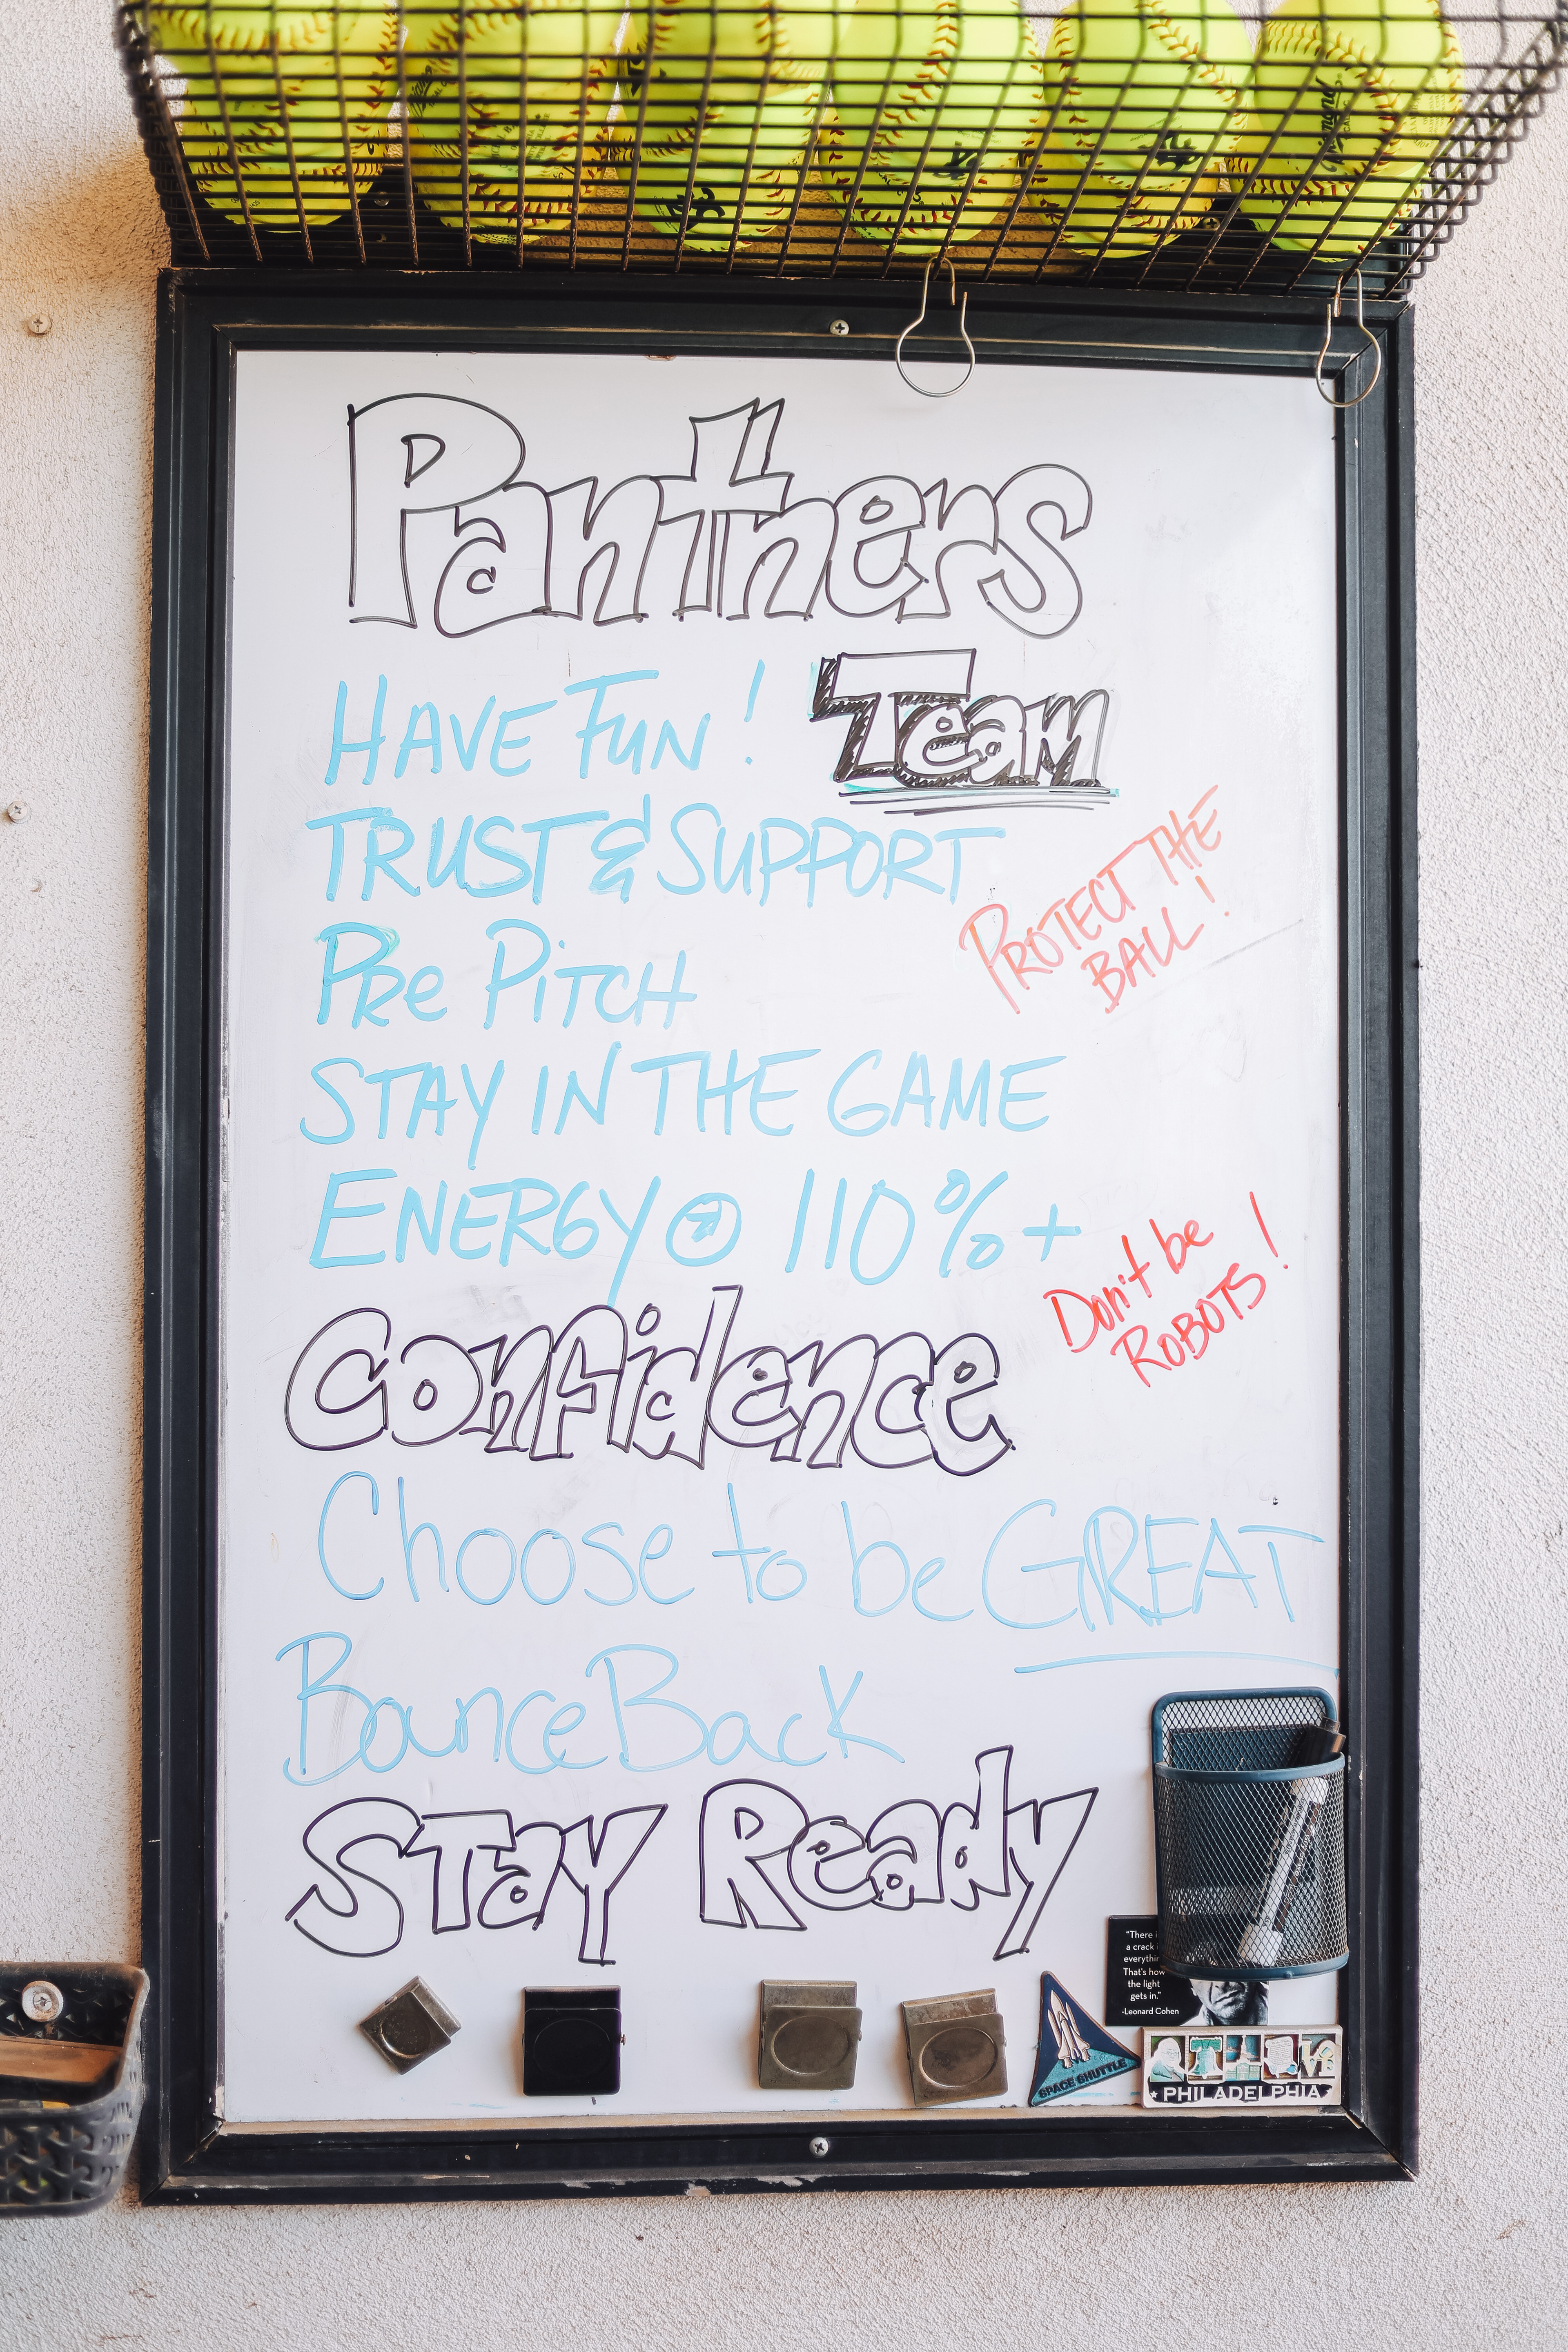 Panthers
HAVE FUN! Team
TRUST & SUPPORT
PROTECT THE
BALL!
PRe PiTCH
STAY IN THE GAME
ENERGY @ 110%+
Don't be
ROBOTS!
Confidence
Choose to be GREAT
Bounce Back
STay Ready
"There
a crack
everythin
That's how
the light
gets in."
-Leonard Cohen
SPACE SHUTTLE
PHILADELPHIA